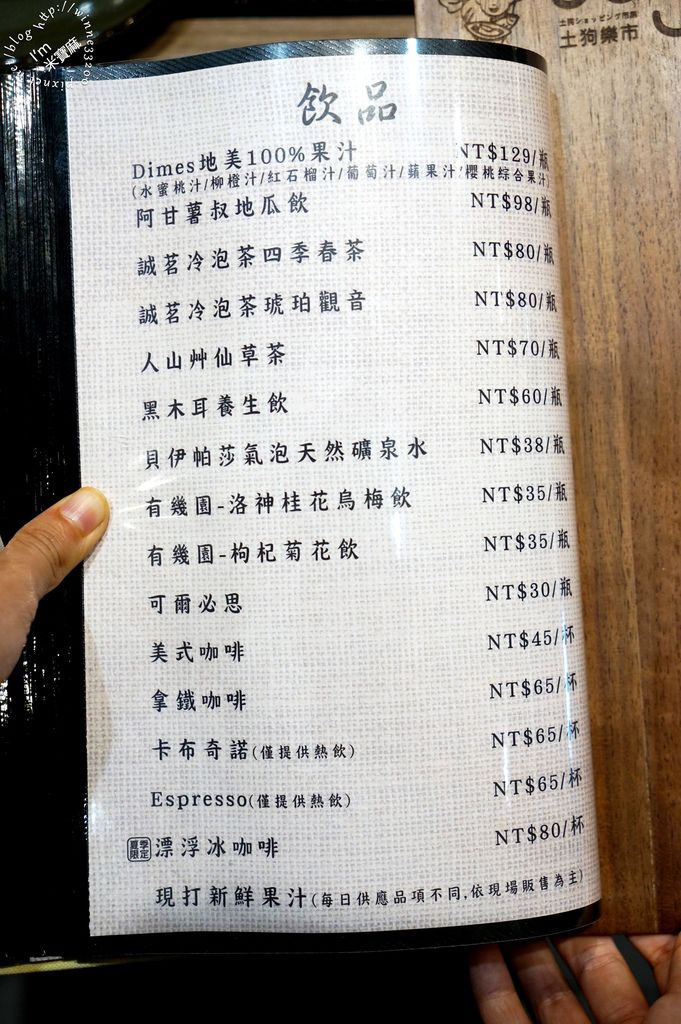 blog http://winne3201
I'm
米寶麻
土狗ショッピング市集
土狗樂市
飲品
Dimes地美100%果汁 NT$129/瓶
(水蜜桃汁/柳橙汁/紅石榴汁/葡萄汁/蘋果汁/櫻桃綜合果汁)
阿甘薯叔地瓜飲 NT$98/瓶
誠茗冷泡茶四季春茶 NT$80/瓶
誠茗冷泡茶琥珀觀音 NT$80/瓶
人山艸仙草茶 NT$70/瓶
黑木耳養生飲 NT$60/瓶
貝伊帕莎氣泡天然礦泉水 NT$38/瓶
有幾園-洛神桂花烏梅飲 NT$35/瓶
有幾園-枸杞菊花飲 NT$35/瓶
可爾必思 NT$30/瓶
美式咖啡 NT$45/杯
拿鐵咖啡 NT$65/杯
卡布奇諾(僅提供熱飲) NT$65/杯
Espresso(僅提供熱飲) NT$65/杯
夏季限定 漂浮冰咖啡 NT$80/杯
現打新鮮果汁(每日供應品項不同,依現場販售為主)